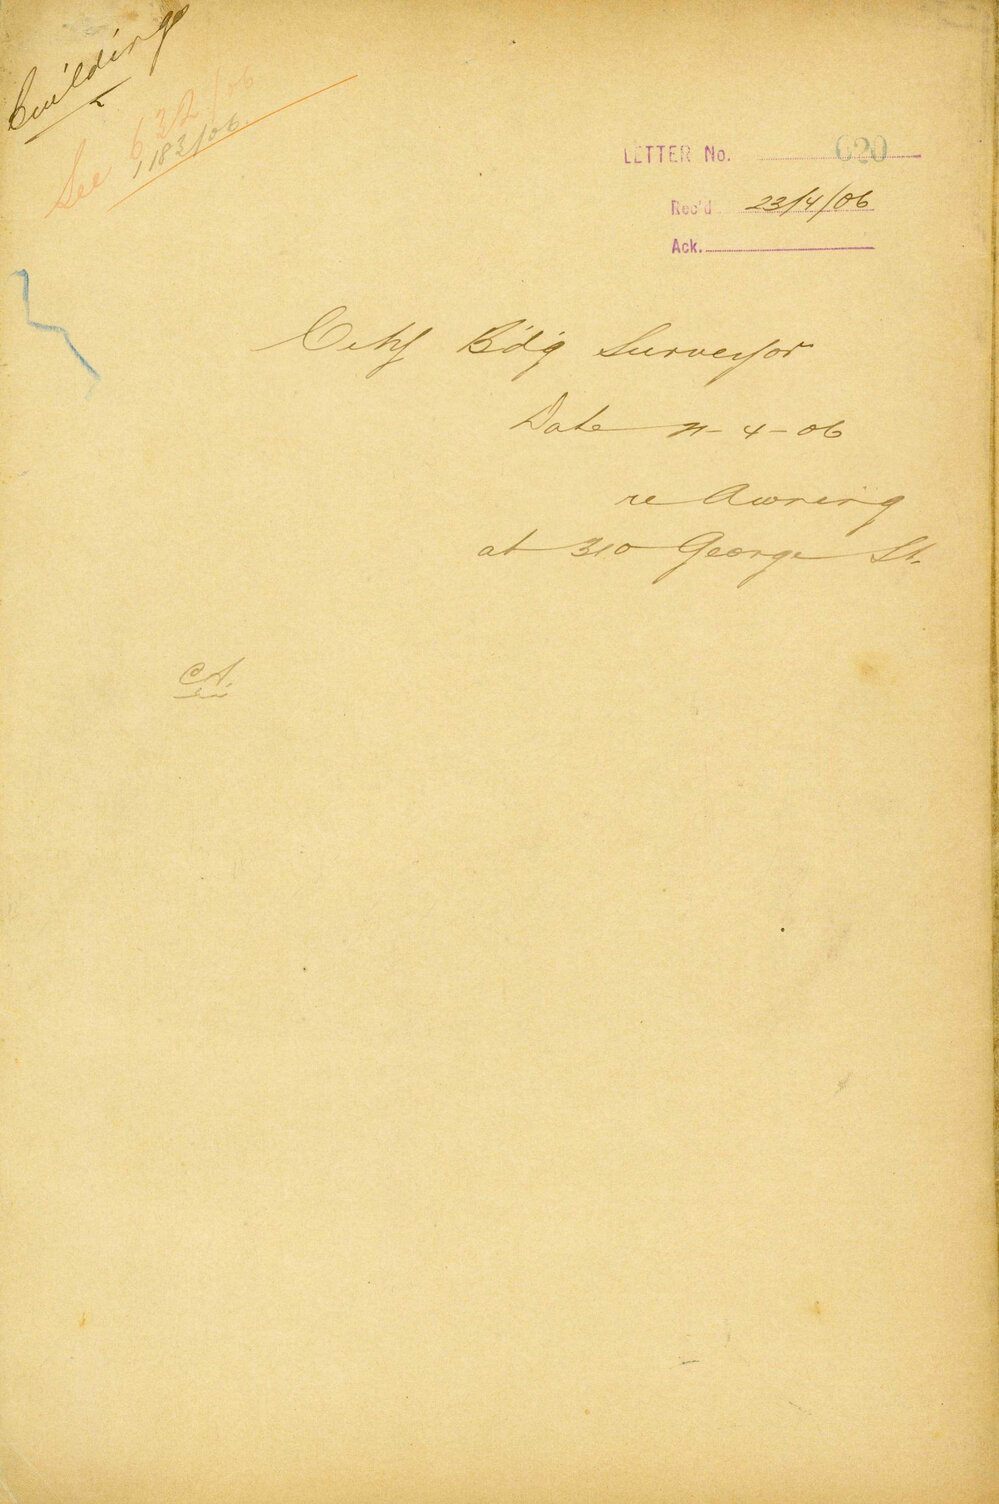 Building
See 632/06
1183/06.
LETTER No. 620
Rec'd 23/4/06
Ack.
City B'd'g Surveyor
Date -4-06
re Awning
at 310 George St.